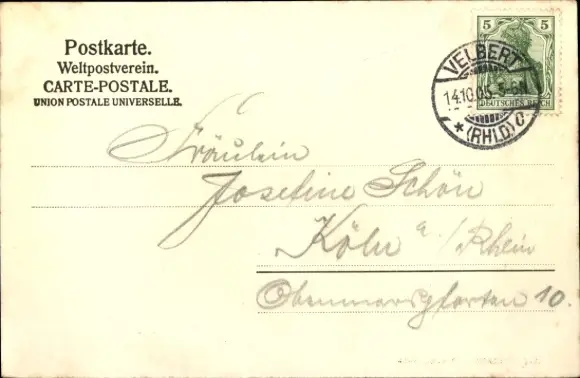 Postkarte.
Weltpostverein.
CARTE-POSTALE.
UNION POSTALE UNIVERSELLE.
5 5
DEUTSCHES REICH
VELBERT
14.10.05. 5-6N
* (RHLD) c
Fräulein
Josefine Schön
Köln a/Rhein
Obenmarspforten 10.